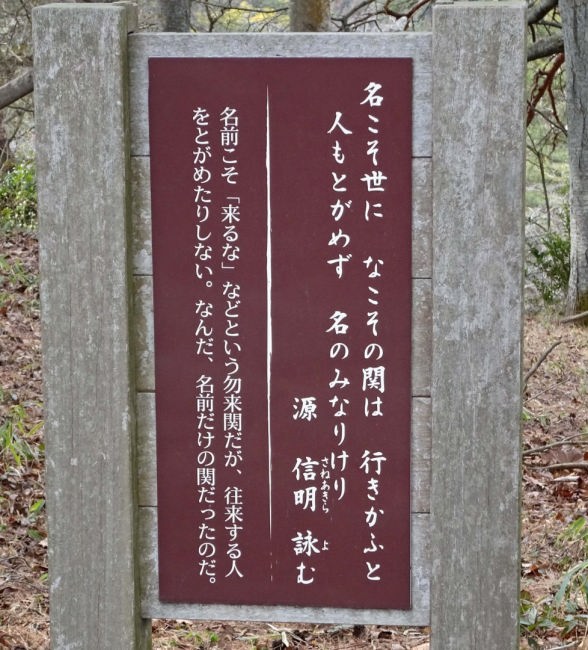 名こそ世に　なこその関は　行きかふと
人もとがめず　名のみなりけり
源　信明　詠む
さねあきら　よ
名前こそ「来るな」などという勿来関だが、往来する人
をとがめたりしない。なんだ、名前だけの関だったのだ。